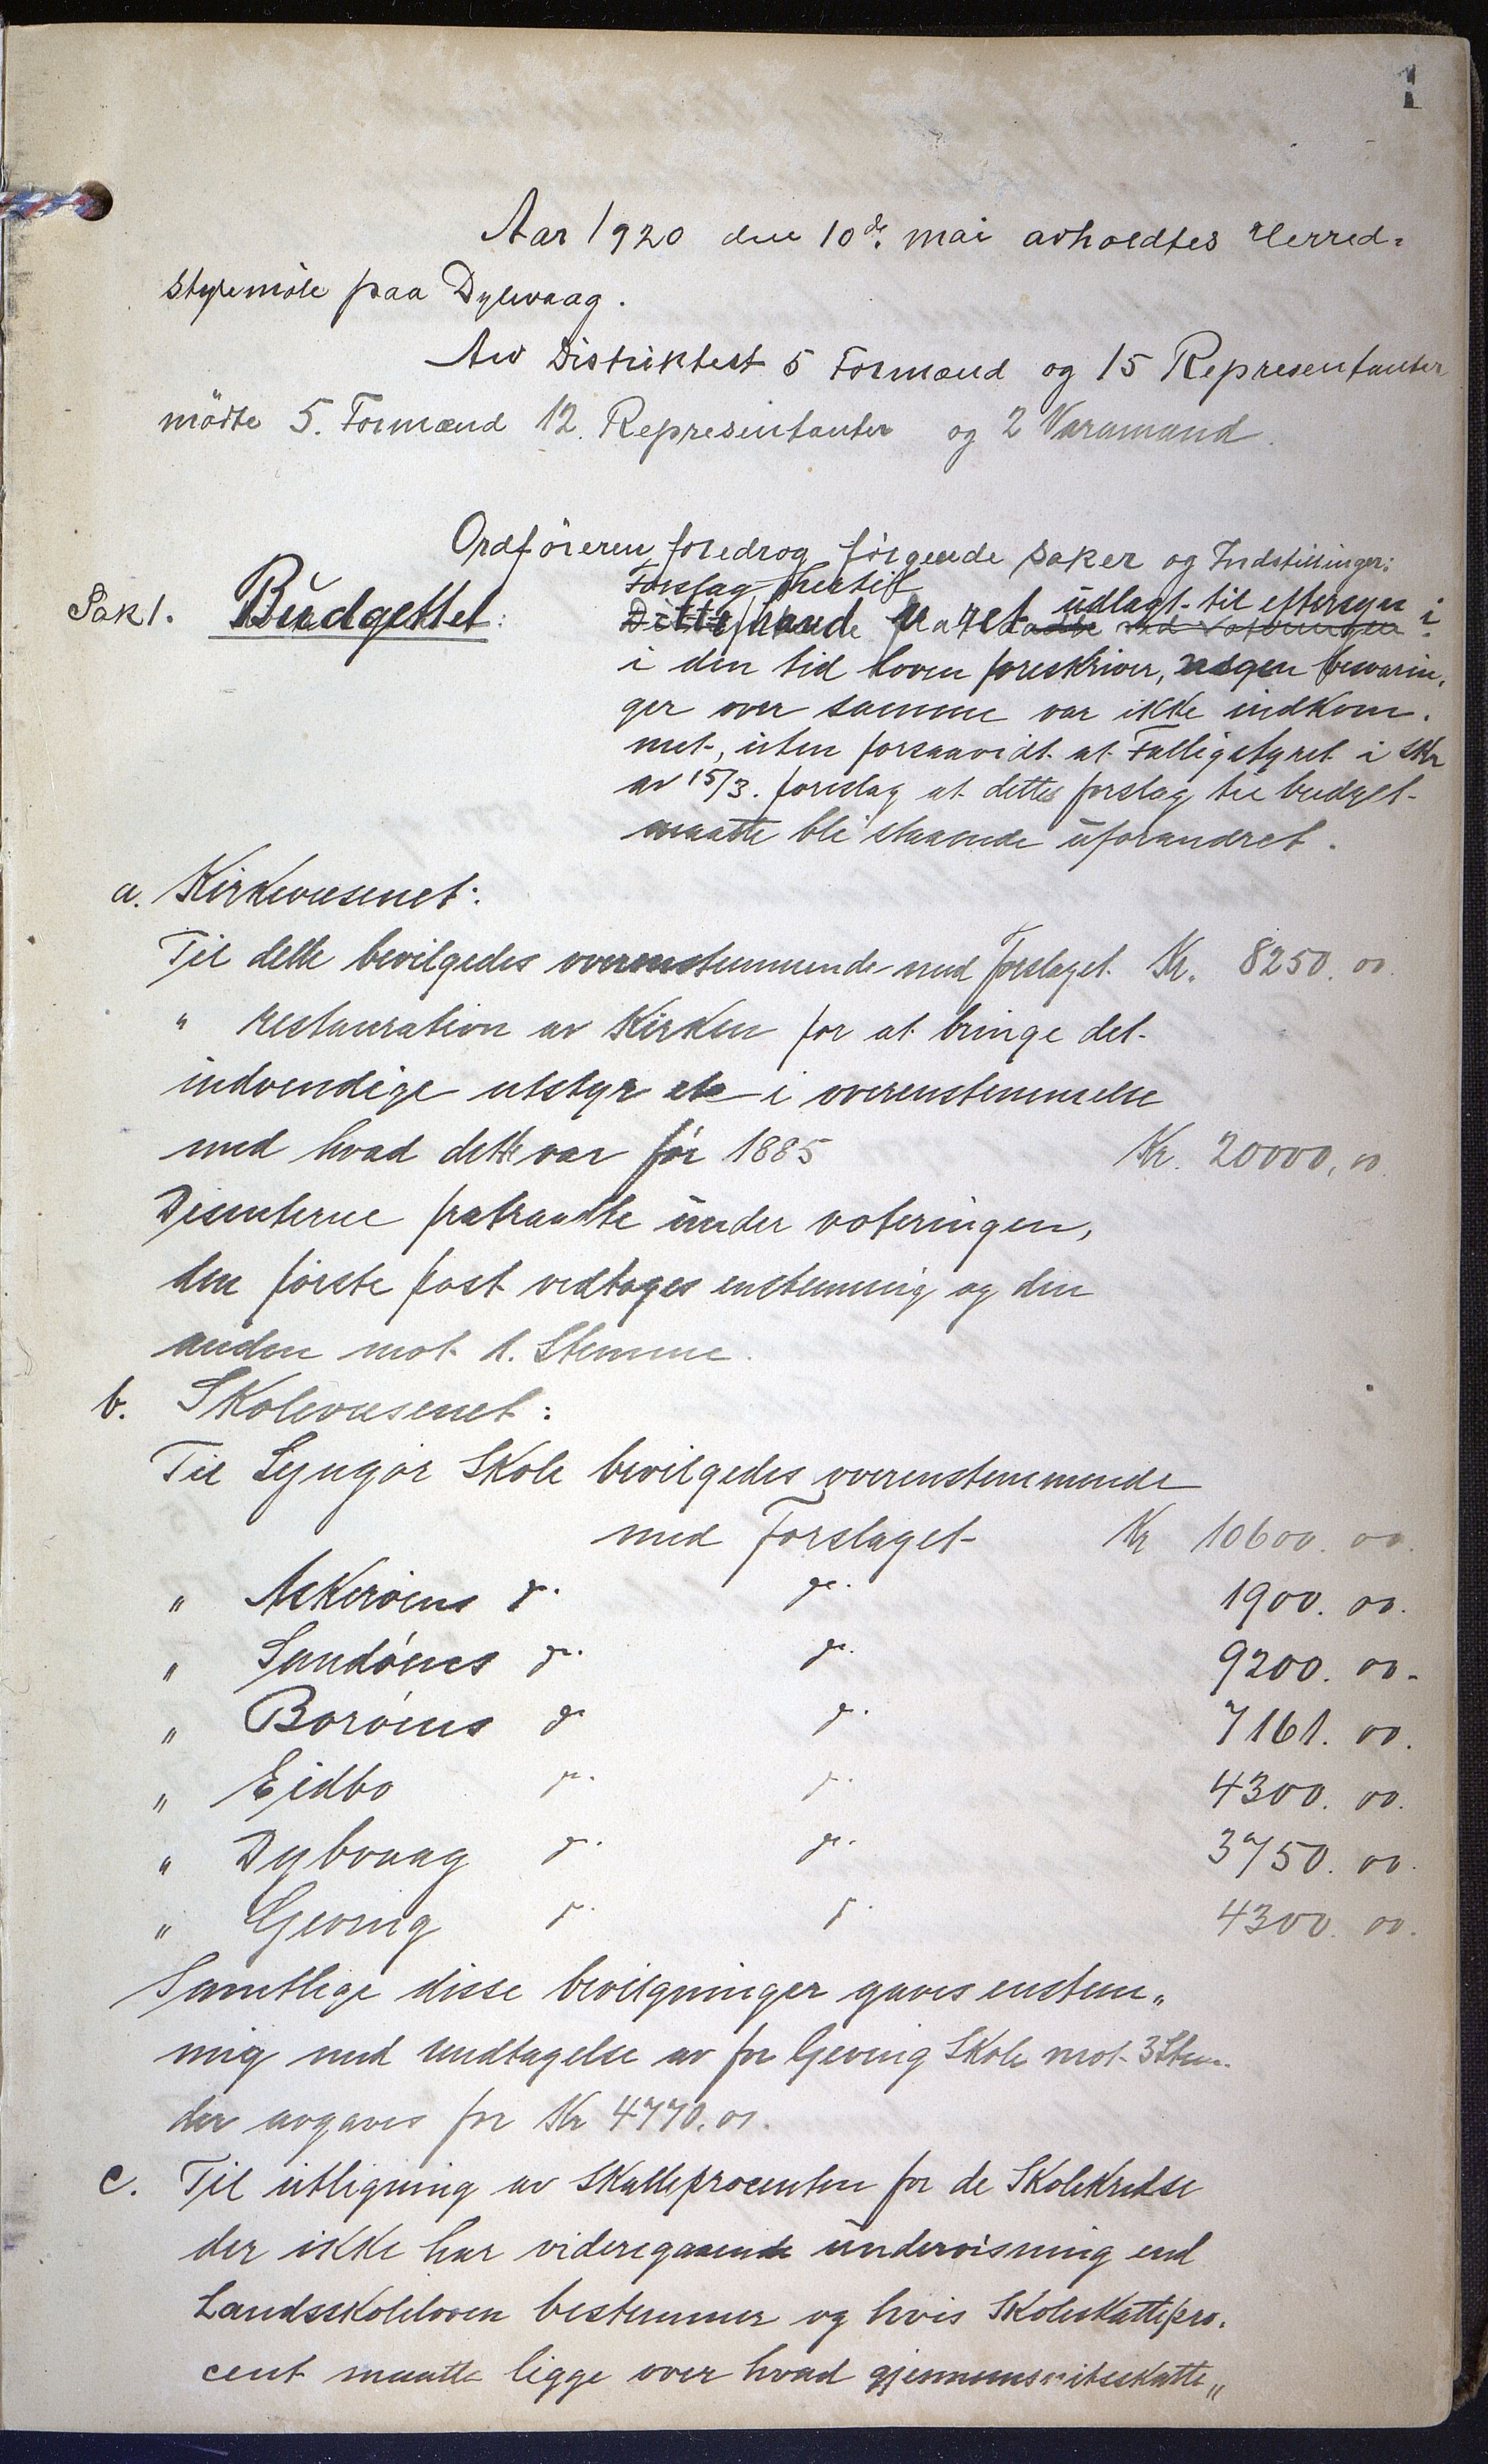 1
Aar 1920 den 10de mai avholdtes Herred=
styremöte paa Dybvaag.
Av Distriktest 5 Formænd og 15 Representanter
mödte 5. Formænd 12. Representanter og 2 Varamænd.
Ordföreren foredrog fölgende saker og Indstillinger:
Sak 1. Budgettet: Forslag hertil
havde været udlagt til eftersyn i
i den tid loven foreskriver, nogen bevarin,
ger over samme var ikke indkom.
met, uten forsaavidt at Fattigstyret i Skr
av 15/3. foreslog at dettes forslag til budget
maatte bli staaende uforandret.
a. Kirkevæsenet:
Til dette bevilgedes overenstemmende med forslaget Kr. 8250.00.
" restauration av Kirken for at bringe det
indvendige utstyr etc i overenstemmelse
med hvad dette var för 1885 Kr. 20000,00.
Disenterne fratraadte under voteringen,
den förste post vedtoges enstemmig og den
anden mot 1. Stemme.
b. Skolevæsenet:
Til Lyngör Skole bevilgedes overenstemmende
med Forslaget Kr 10600.00.
" Askeröens do. do. 1900.00.
" Sandöens do. do. 9200.00.
" Boröens do do. 7161.00.
" Eidbo do. do. 4300.00.
" Dybvaag do. do. 3750.00.
" Geving do. do. 4300.00.
Samtlige disse bevilgninger gaves enstem„
mig med undtagelse av for Geving Skole mot 3 Stem.
der avgaves for Kr 4770.00.
c. Til utligning av Skatteprocenten for de Skolekredse
der ikke har videregaaende undervisning end
Landsskoleloven bestemmer og hvis Skoleskattepro.
cent maatte ligge over hvad gjennemsnitsskatte„